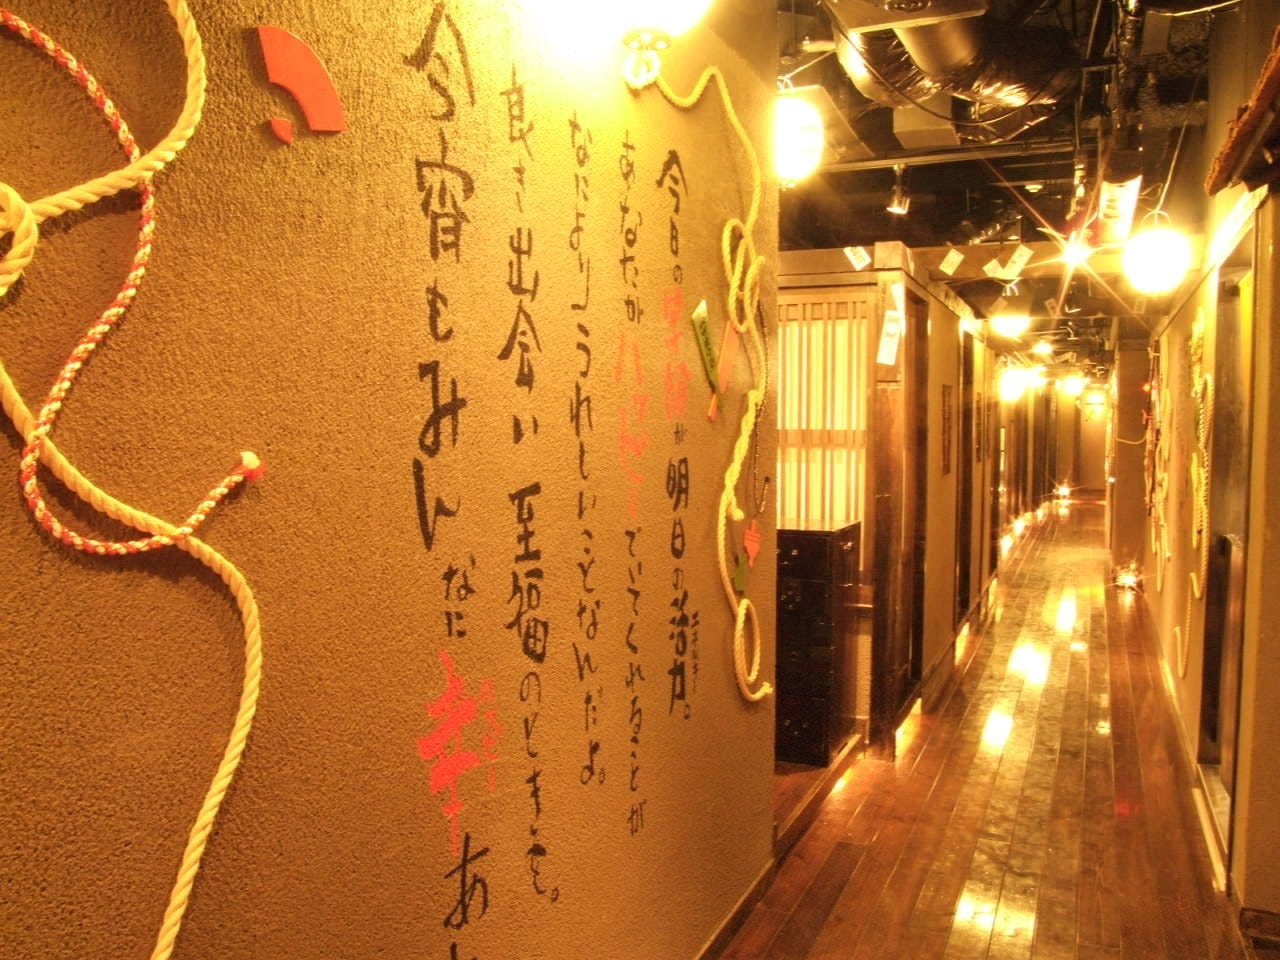 今日の笑顔が明日の活力。
エネルギー
あなたがハッピーでいてくれることが
なによりうれしいことなんだよ。
良き出会い至福のときを。
今宵もみんなに幸あ